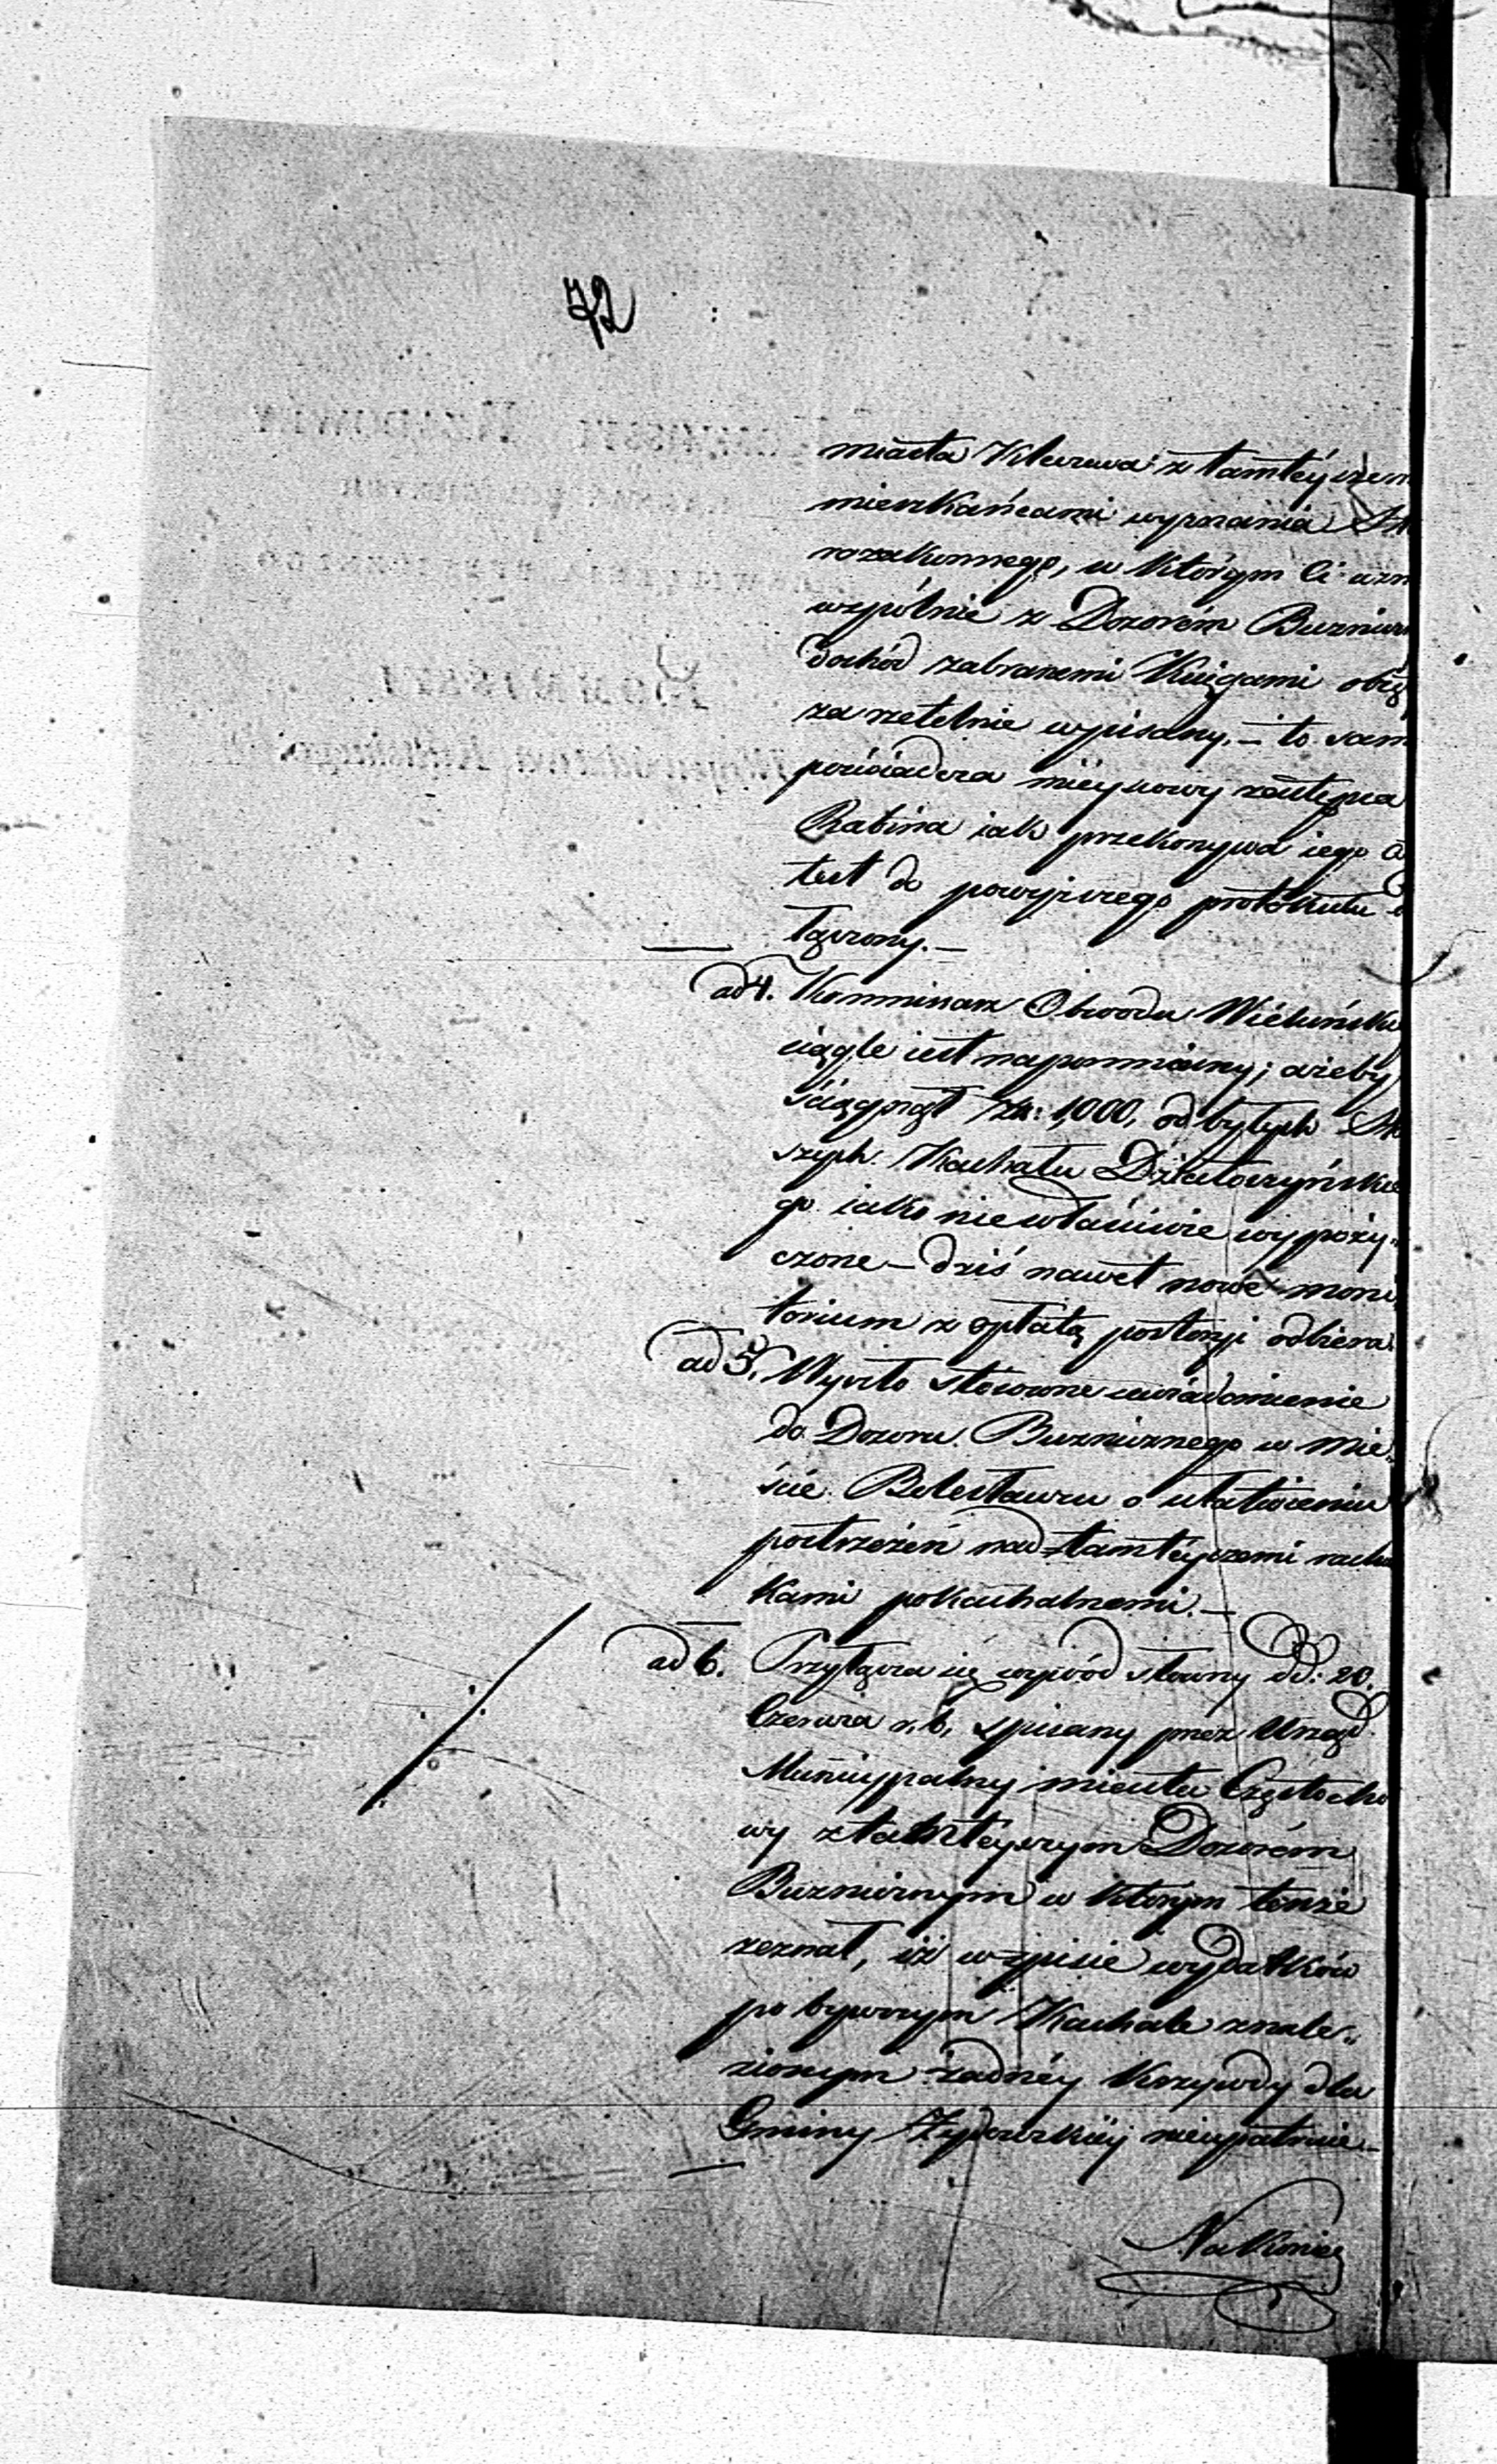 72
miasta Kleczewa z tamtéyszem
mieszkańcami wyznania St
rozakonnego, w którym Ci uzn
wspólnie z Dozorém Bużnicz
dochód zabranemi Księgami obię
za rzetelnie wpisany, — to sam
poświadcza mieyscowy zastępca
Rabina iak przekonywa iego a
test do powyższego protokułu d
łączony. —
ad 4. Kommissarz Obwodu Wieluńskie
ciągle iest napominany, ażeby
ściągnął Złt: 1,000, od byłych St
szych Kachału Działoszyńskie
go iako niewłaściwie wypoży„
czone — dziś nawet nowe moni
torium z opłatą portorji odbiera.
ad 5. Wyszło stosowne uwiadomienie
do Dozoru Bużnicznego w mie„
ście Bolesławcu o ułatwieniu
postrzeżeń nad tamtéyszemi rachu
kami pokachalnemi. —
ad 6. Przyłącza się wywód słowny dd: 20.
Czerwca r. b. spisany przez Urząd
Municypalny miasta Częstocho
wy z tamtéyszym Dozorém
Bużnicznym w którym tenże
zeznał, iż w spisie wydatków
po bywszym Kachale znale„
zionym żadnéy krzywdy dla
Gminy Żydowskiéy nieupatruie. —
Nakoniec